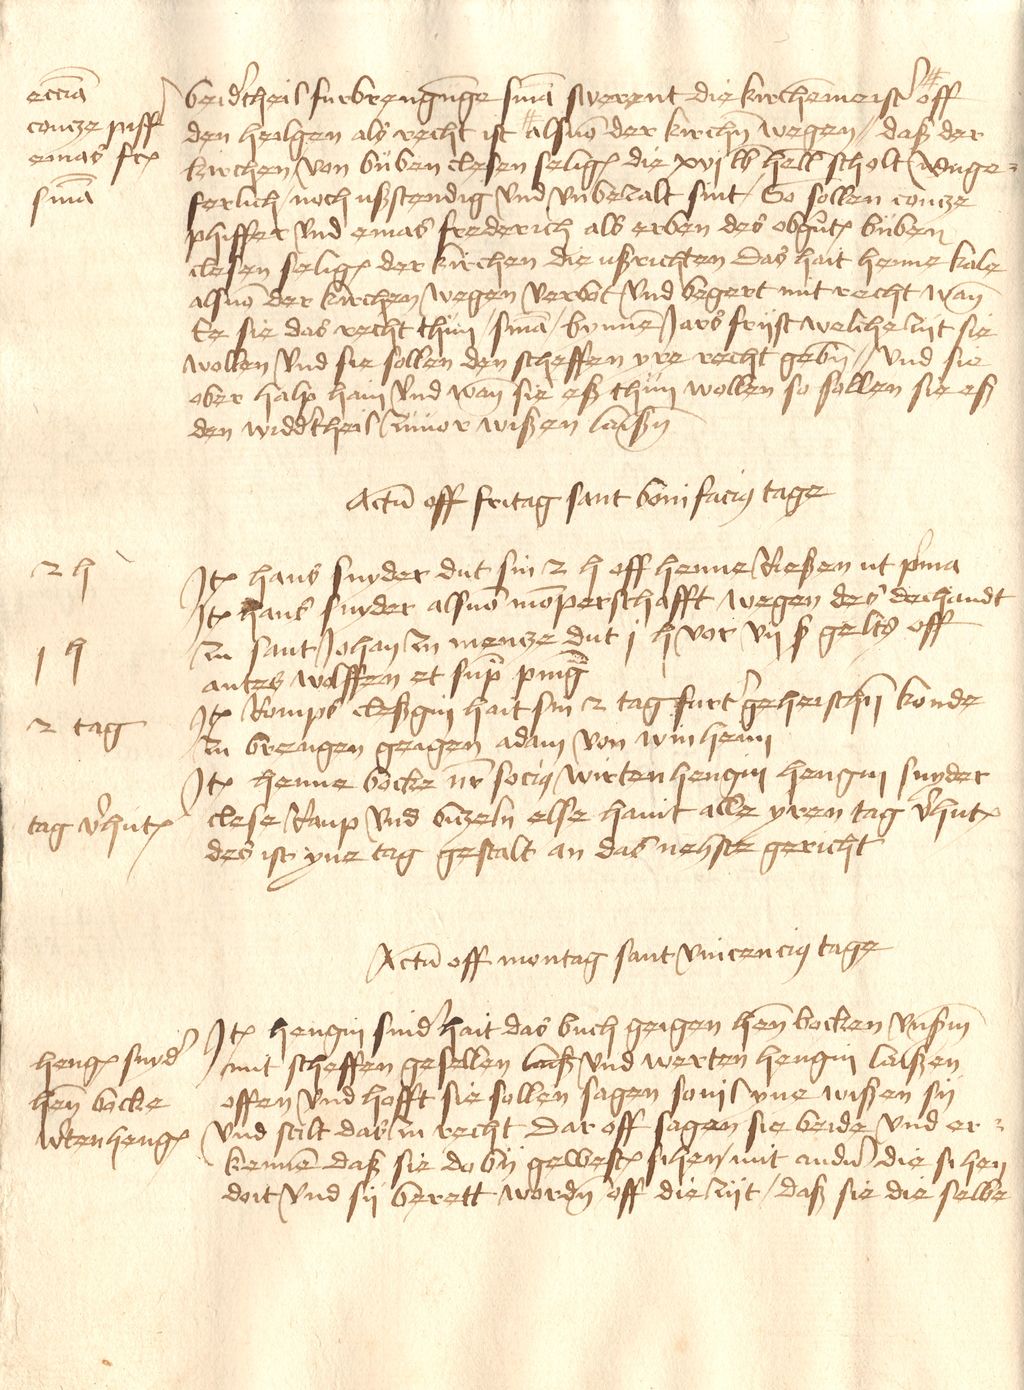 eccia
concze piff
emas fre
sma
beider theil furbrengunge sma swerent die kirchemeister off
den heilgen als recht ist alsuo der kirchen wegen / daß der
kirchen von büben clesen selige die xvi lb hell scholt unge=
ferlich noch ußstendig und unbezalt sint / So sollen concze
phiffer und emas frederich als erben des obgnte büben
clesen selige der kirchen die ußrichten Das hait henne kale
alsuo der kirchen wegen verbot und begert mit recht wan
Ee sie das recht thun / sma / bynne Jars friist welche ziit sie
wollen und sie sollen den scheffen yre recht gebin / und sie
ober halp hain und wan sie eß thun wollen so sollen sie eß
den widdertheil zuvor wißen laißen
Actu off fritag sant bonifacius tage
2 h
Ite hans snyder dut sin 2 h off henne Rießen ut prima
Ite hans snyder alsuo momperschafft wegen des dechandt
1 h
zu sant Johan zu mencze dut j h vor vij ß gelts off
antes wolffen et super pingnora
2 tag
Ite Romps cleßgin hait sin 2 tag furter geheischen konde
zu brengen geigen adam von winheim
Ite henne bocke nr socius wirtenhengin hengin snyder
tag verhute
clese Raup undunzeln else hanit alle yren tag verhute
des ist yne tag gestalt an das nehste gericht
Actu off montag sant vincencius tage
Ite hengin snider hait das buch geigen hen bocken
henge snyder
mit scheffen gesellen laiß und werten hengin laißen
hen bocke
offen und hofft sie sollen sagen sovil yne wißen sij
wtenhenge
und stilt das zu recht Dar off sagen sie beide und er=
kennen daß sie do bij geweste sihen mit ander die sihen
doit und sij berett worden off die ziit / daß sie die selbe